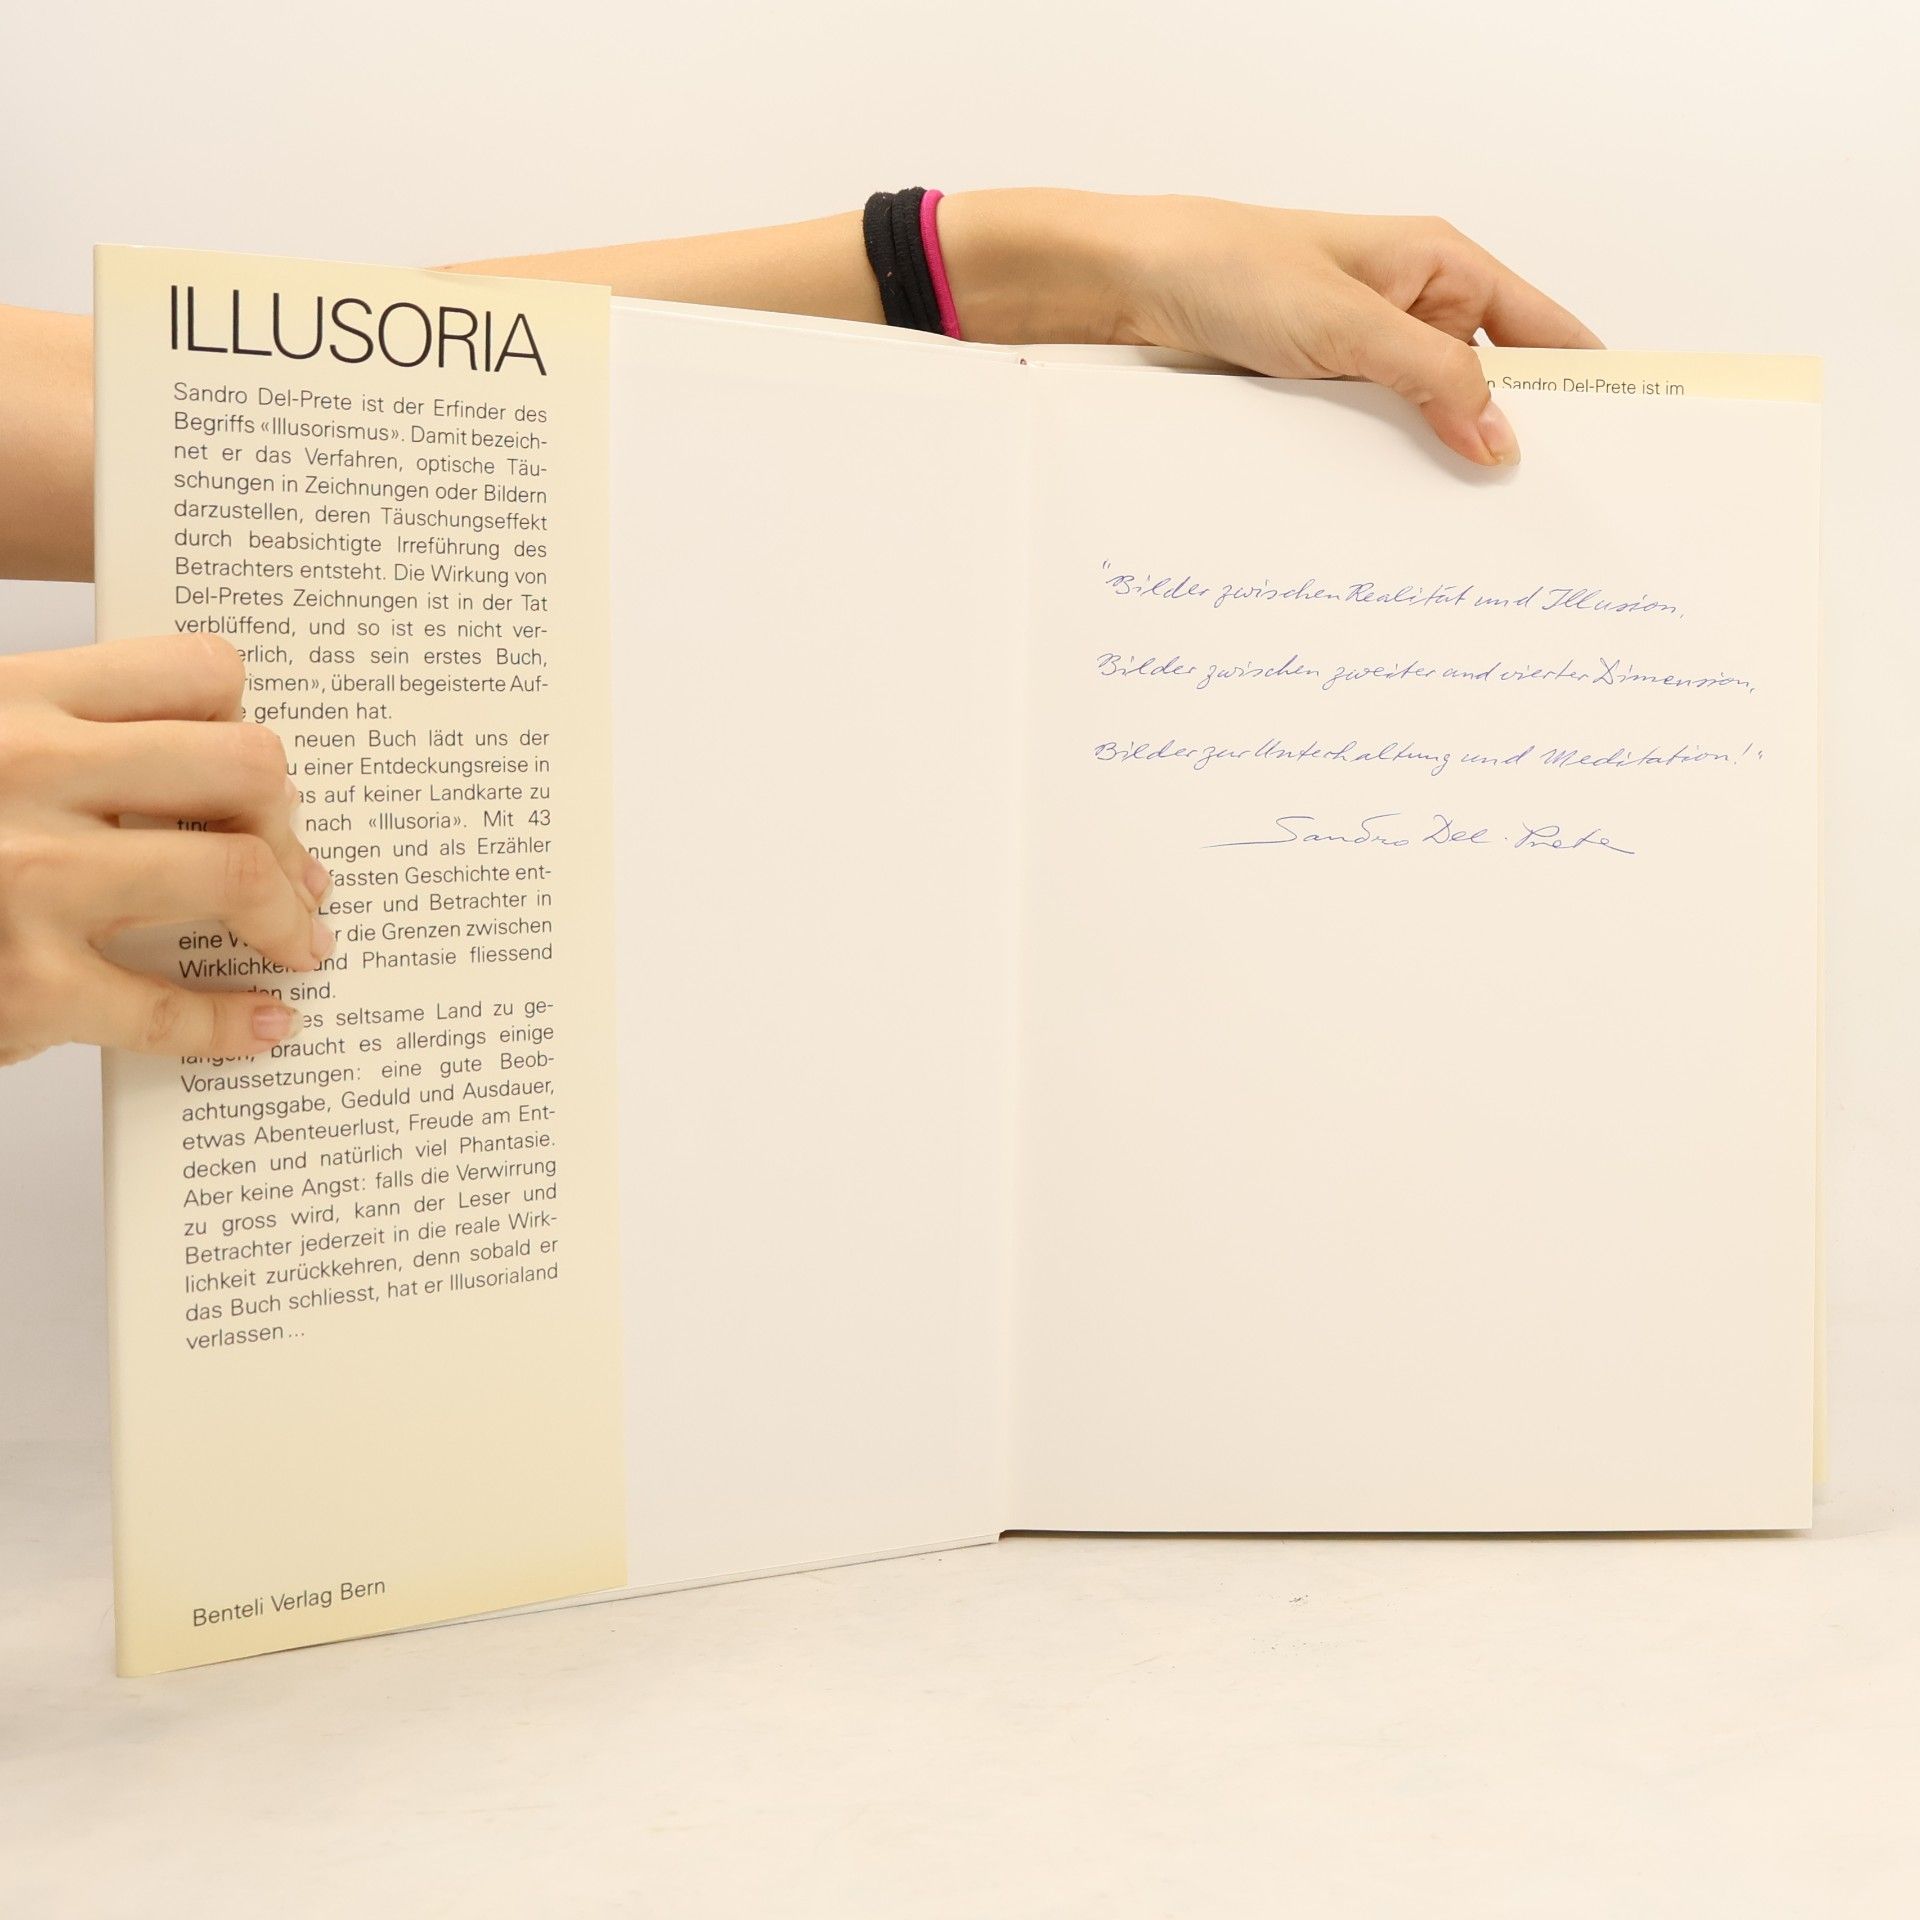 ILLUSORIA
Sandro Del-Prete ist der Erfinder des
Begriffs «Illusorismus». Damit bezeich-
net er das Verfahren, optische Täu-
schungen in Zeichnungen oder Bildern
darzustellen, deren Täuschungseffekt
durch beabsichtigte Irreführung des
Betrachters entsteht. Die Wirkung von
Del-Pretes Zeichnungen ist in der Tat
verblüffend, und so ist es nicht ver-
erlich, dass sein erstes Buch,
rismen», überall begeisterte Auf-
gefunden hat.
neuen Buch lädt uns der
u einer Entdeckungsreise in
as auf keiner Landkarte zu
nach «Illusoria». Mit 43
nungen und als Erzähler
fassten Geschichte ent-
Leser und Betrachter in
eine die Grenzen zwischen
Wirklichkeit und Phantasie fliessend
sind.
es seltsame Land zu ge-
langen, braucht es allerdings einige
Voraussetzungen: eine gute Beob-
achtungsgabe, Geduld und Ausdauer,
etwas Abenteuerlust, Freude am Ent-
decken und natürlich viel Phantasie.
Aber keine Angst: falls die Verwirrung
zu gross wird, kann der Leser und
Betrachter jederzeit in die reale Wirk-
lichkeit zurückkehren, denn sobald er
das Buch schliesst, hat er Illusorialand
verlassen...
Benteli Verlag Bern
n Sandro Del-Prete ist im
"Bilder zwischen Realität und Illusion,
Bilder zwischen zweiter und vierter Dimension,
Bilder zur Unterhaltung und Meditation!"
Sandro Del-Prete